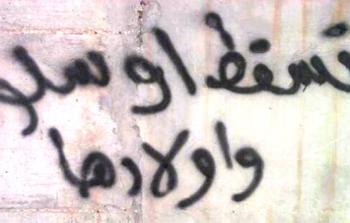 تسقط اوسلو
واولادها